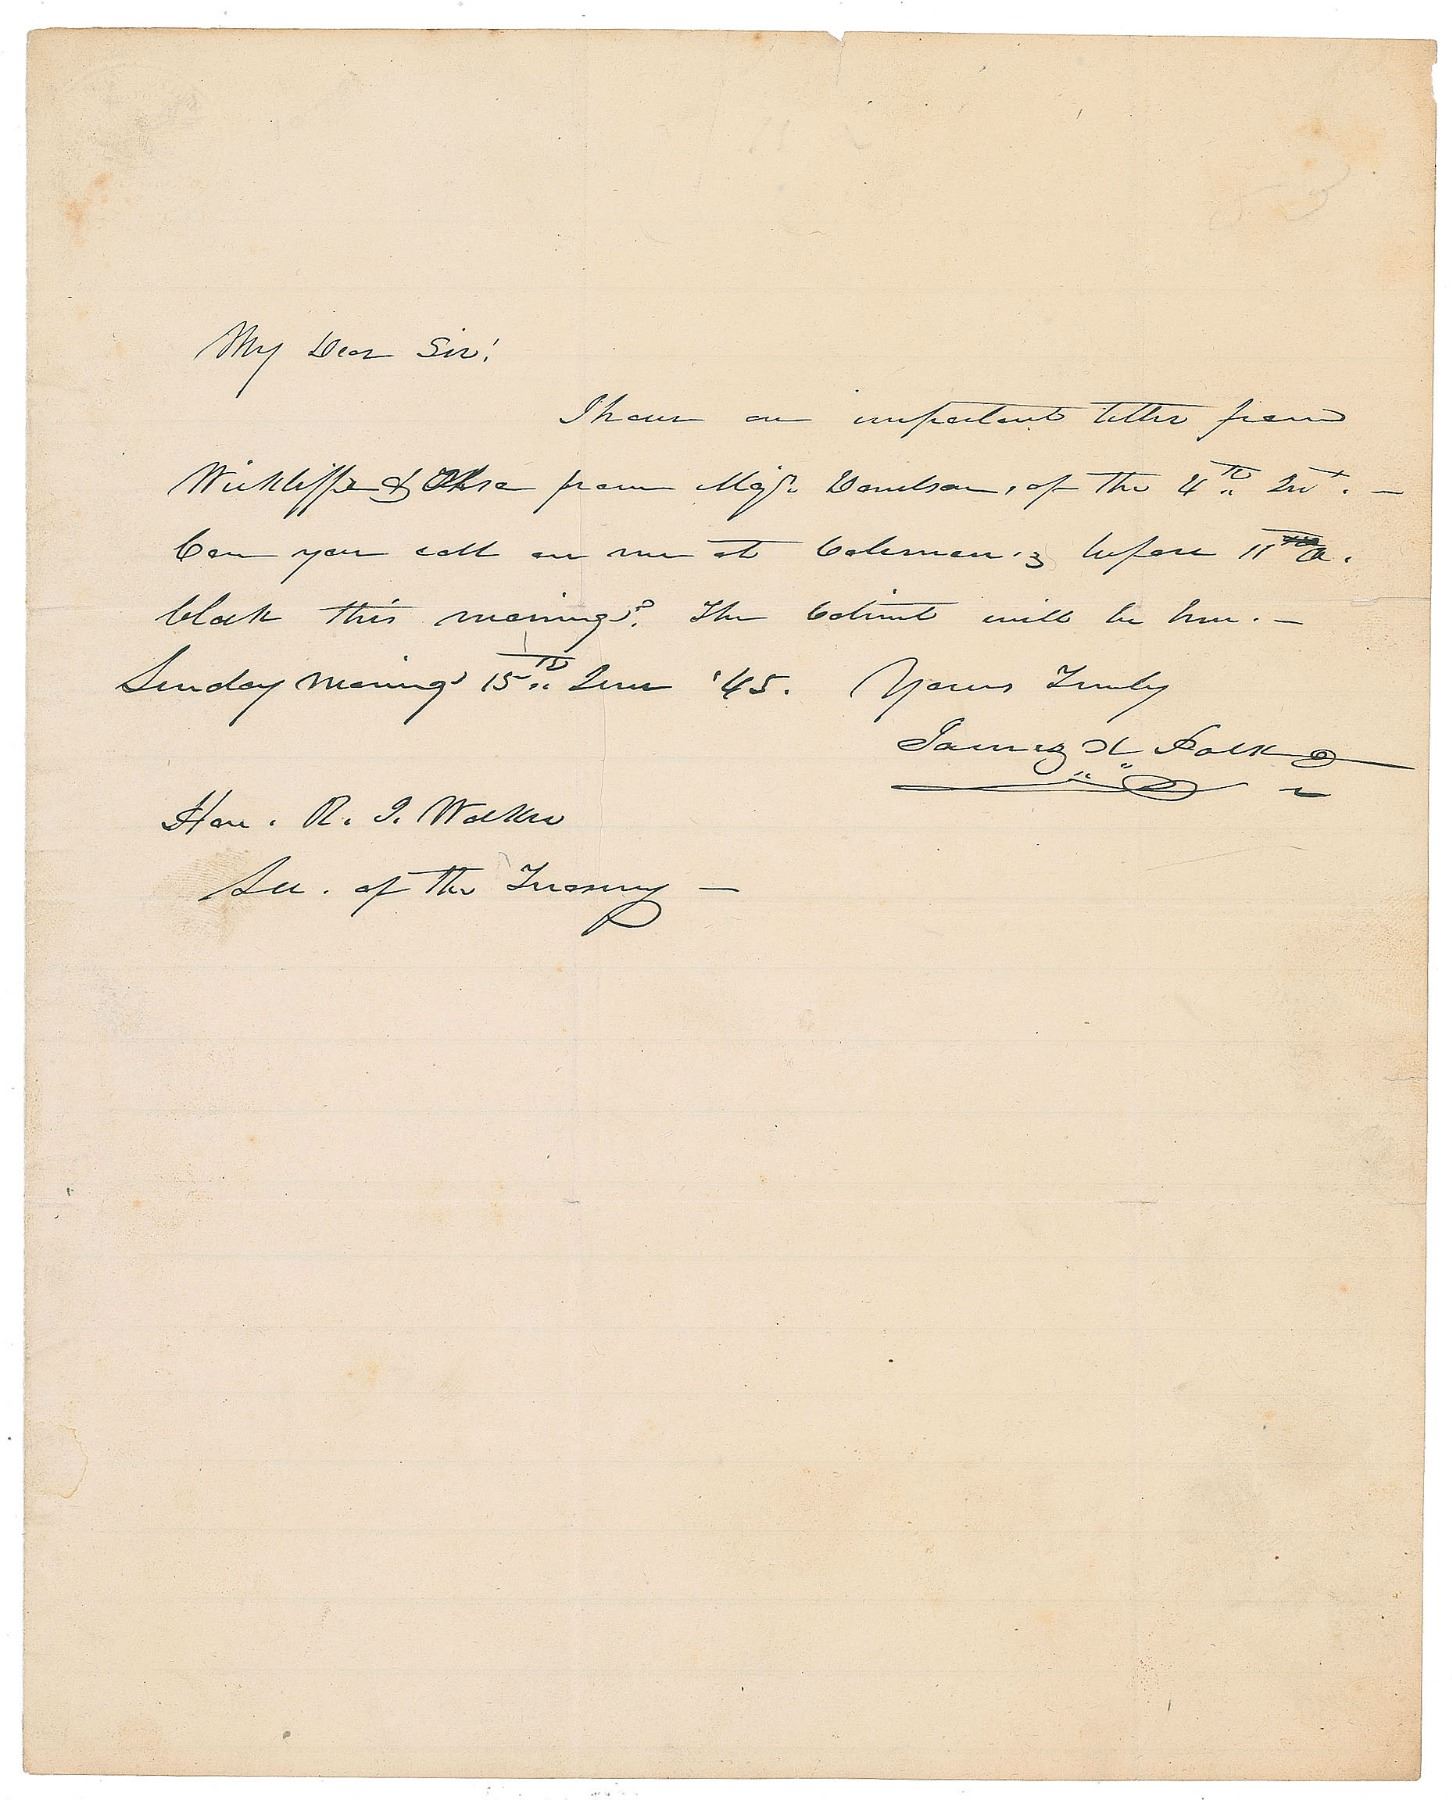 My Dear Sir!
I have an important letter from
Wickliffe & also from Majr. Donelson, of the 4th Inst. —
Can you call on me at Coleman's before 11 O.
Clock this morning? The Cabinet will be here. —
Sunday morning 15th June '45. Yours Truly
James K Polk
Hon. R. J. Walker
Sec. of the Treasury —